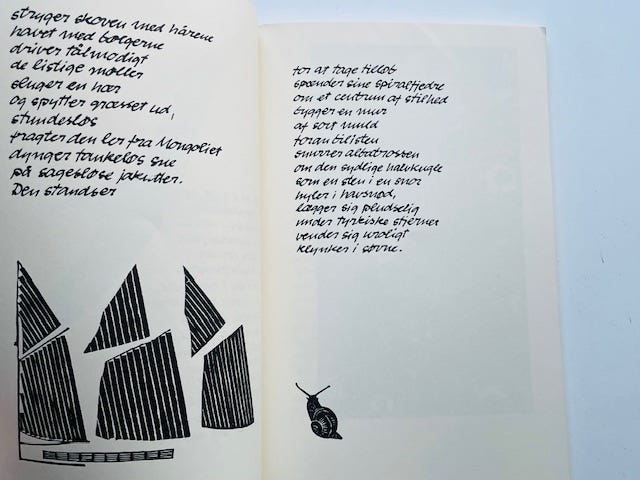 stryger skoven med hårene
havet med bølgerne
driver tålmodigt
de listige møller
sluger en hær
og spytter græsset ud,
stundesløs
fragter den ler fra Mongoliet
dynger tankeløs sne
på sagesløse jakutter.
Den standser
for at tage tilløb
spænder sine spiralfjedre
om et centrum af stilhed
bygger en mur
af sort muld
foran bilisten
snurrer albatrossen
om den sydlige halvkugle
som en sten i en snor
hyler i havsnød,
lægger sig pludselig
under tyrkiske stjerner
vender sig uroligt
klynker i søvne.